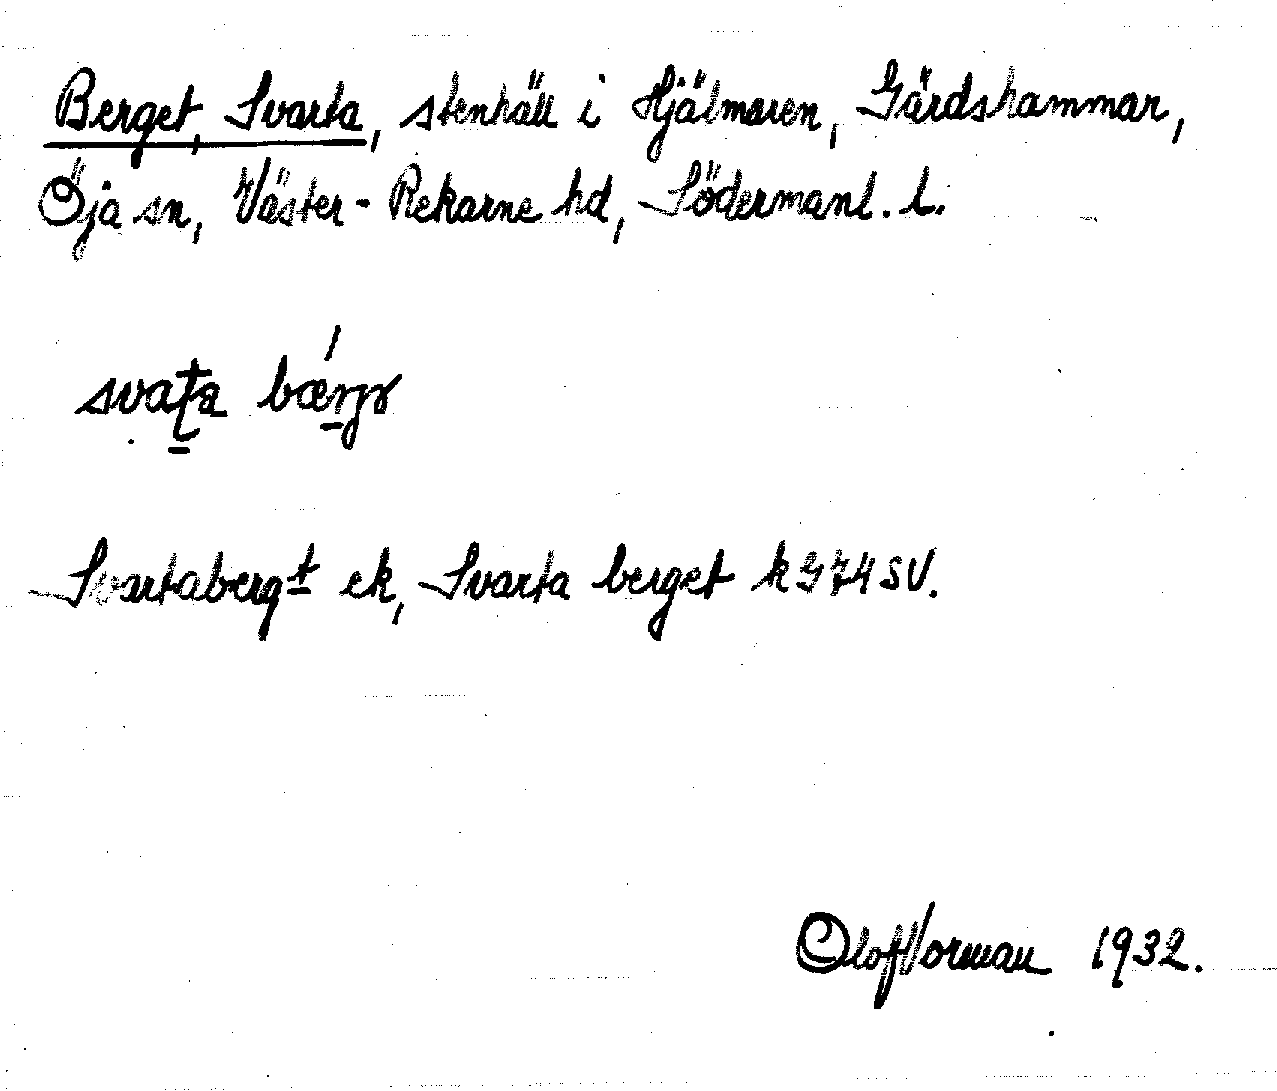 Berget, Svarta, stenhäll i Hjälmaren, Gärdshammar,
Öja sn, Väster-Rekarne hd, Södermanl. l.
svata
Svartabergt ek, Svarta berget k 374 SV.
Olof Vorman 1932.